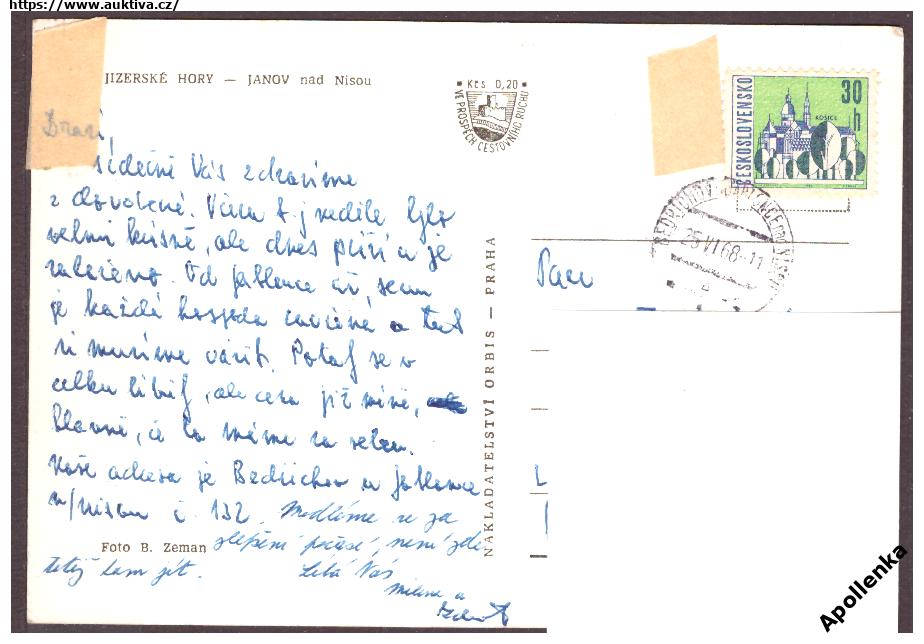 https://www.auktiva.cz/
JIZERSKÉ HORY — JANOV nad Nisou
Kčs 0,20
VE PROSPĚCH CESTOVNÍHO RUCHU
ČESKOSLOVENSKO
30 h
KOŠICE
25 VI 68-11
Drazí,
Vás zdravíme
z dovolené. Včera t. j. neděle bylo
velmi krásně, ale dnes prší a je
zataženo. Od Jablonce až sem
je každá hospoda zavřena a tak
si musíme vařit. Potaj se v
celku líbí, ale cesta již méně,
hlavně, že to máme za sebou.
Naše adresa je Bedřichov u Jablonce
n/Nisou č. 132. Modléme se za
zlepšení počasí, není zde
totiž kam jít. Líbá Vás
Milena a
Paní
NAKLADATELSTVÍ ORBIS — PRAHA
Foto B. Zeman
Apollenka